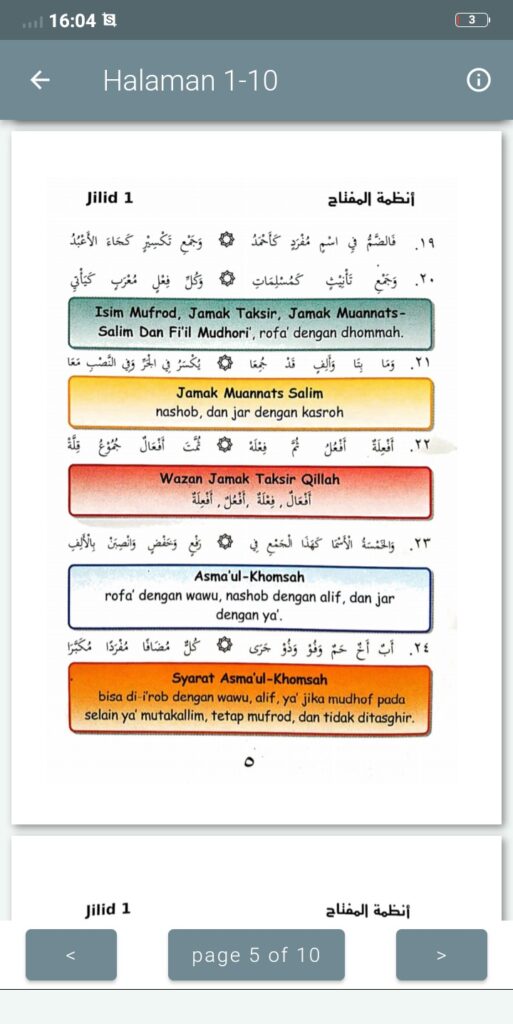 16:04
3
Halaman 1-10
Jilid 1 أنظمة المفتاح
١٩. فَالضَّمُّ فِي اسْمِ مُفْرَدٍ كَأَحْمَدُ ۞ وَجَمْعِ تَكْسِيْرٍ كَجَاءَ الأَعْبُدُ
٢٠. وَجَمْعِ تَأْنِيْثٍ كَمُسْلِمَاتِ ۞ وَكُلِّ فِعْلٍ مُعْرَبٍ كَيَأْتِي
Isim Mufrod, Jamak Taksir, Jamak Muannats-
Salim Dan Fi'il Mudhori', rofa' dengan dhommah.
٢١. وَمَا بِتَا وَأَلِفٍ قَدْ جُمِعَا ۞ يُكْسَرُ فِي الْجَرِّ وَفِي النَّصْبِ مَعَا
Jamak Muannats Salim
nashob, dan jar dengan kasroh
٢٢. أَفْعِلَةٌ أَفْعُلُ ثُمَّ فِعْلَهْ ۞ ثُمَّتَ أَفْعَالٌ جُمُوْعُ قِلَّةْ
Wazan Jamak Taksir Qillah
أَفْعَالٌ , فِعْلَةٌ , أَفْعُلٌ , أَفْعِلَةٌ
٢٣. وَالخَمْسَةُ الْأَسْمَا كَهَذَا الْجَمْعِ فِي ۞ رَفْعٍ وَخَفْضٍ وَانْصِبَنْ بِالْأَلِفِ
Asma'ul-Khomsah
rofa' dengan wawu, nashob dengan alif, dan jar
dengan ya'.
٢٤. أَبٌ أَخٌ حَمٌ وَفُوْ وَذُوْ جَرَى ۞ كُلٌّ مُضَافًا مُفْرَدًا مُكَبَّرَا
Syarat Asma'ul-Khomsah
bisa di-i'rob dengan wawu, alif, ya' jika mudhof pada
selain ya' mutakallim, tetap mufrod, dan tidak ditasghir.
٥
Jilid 1 أنظمة المفتاح
< page 5 of 10 >